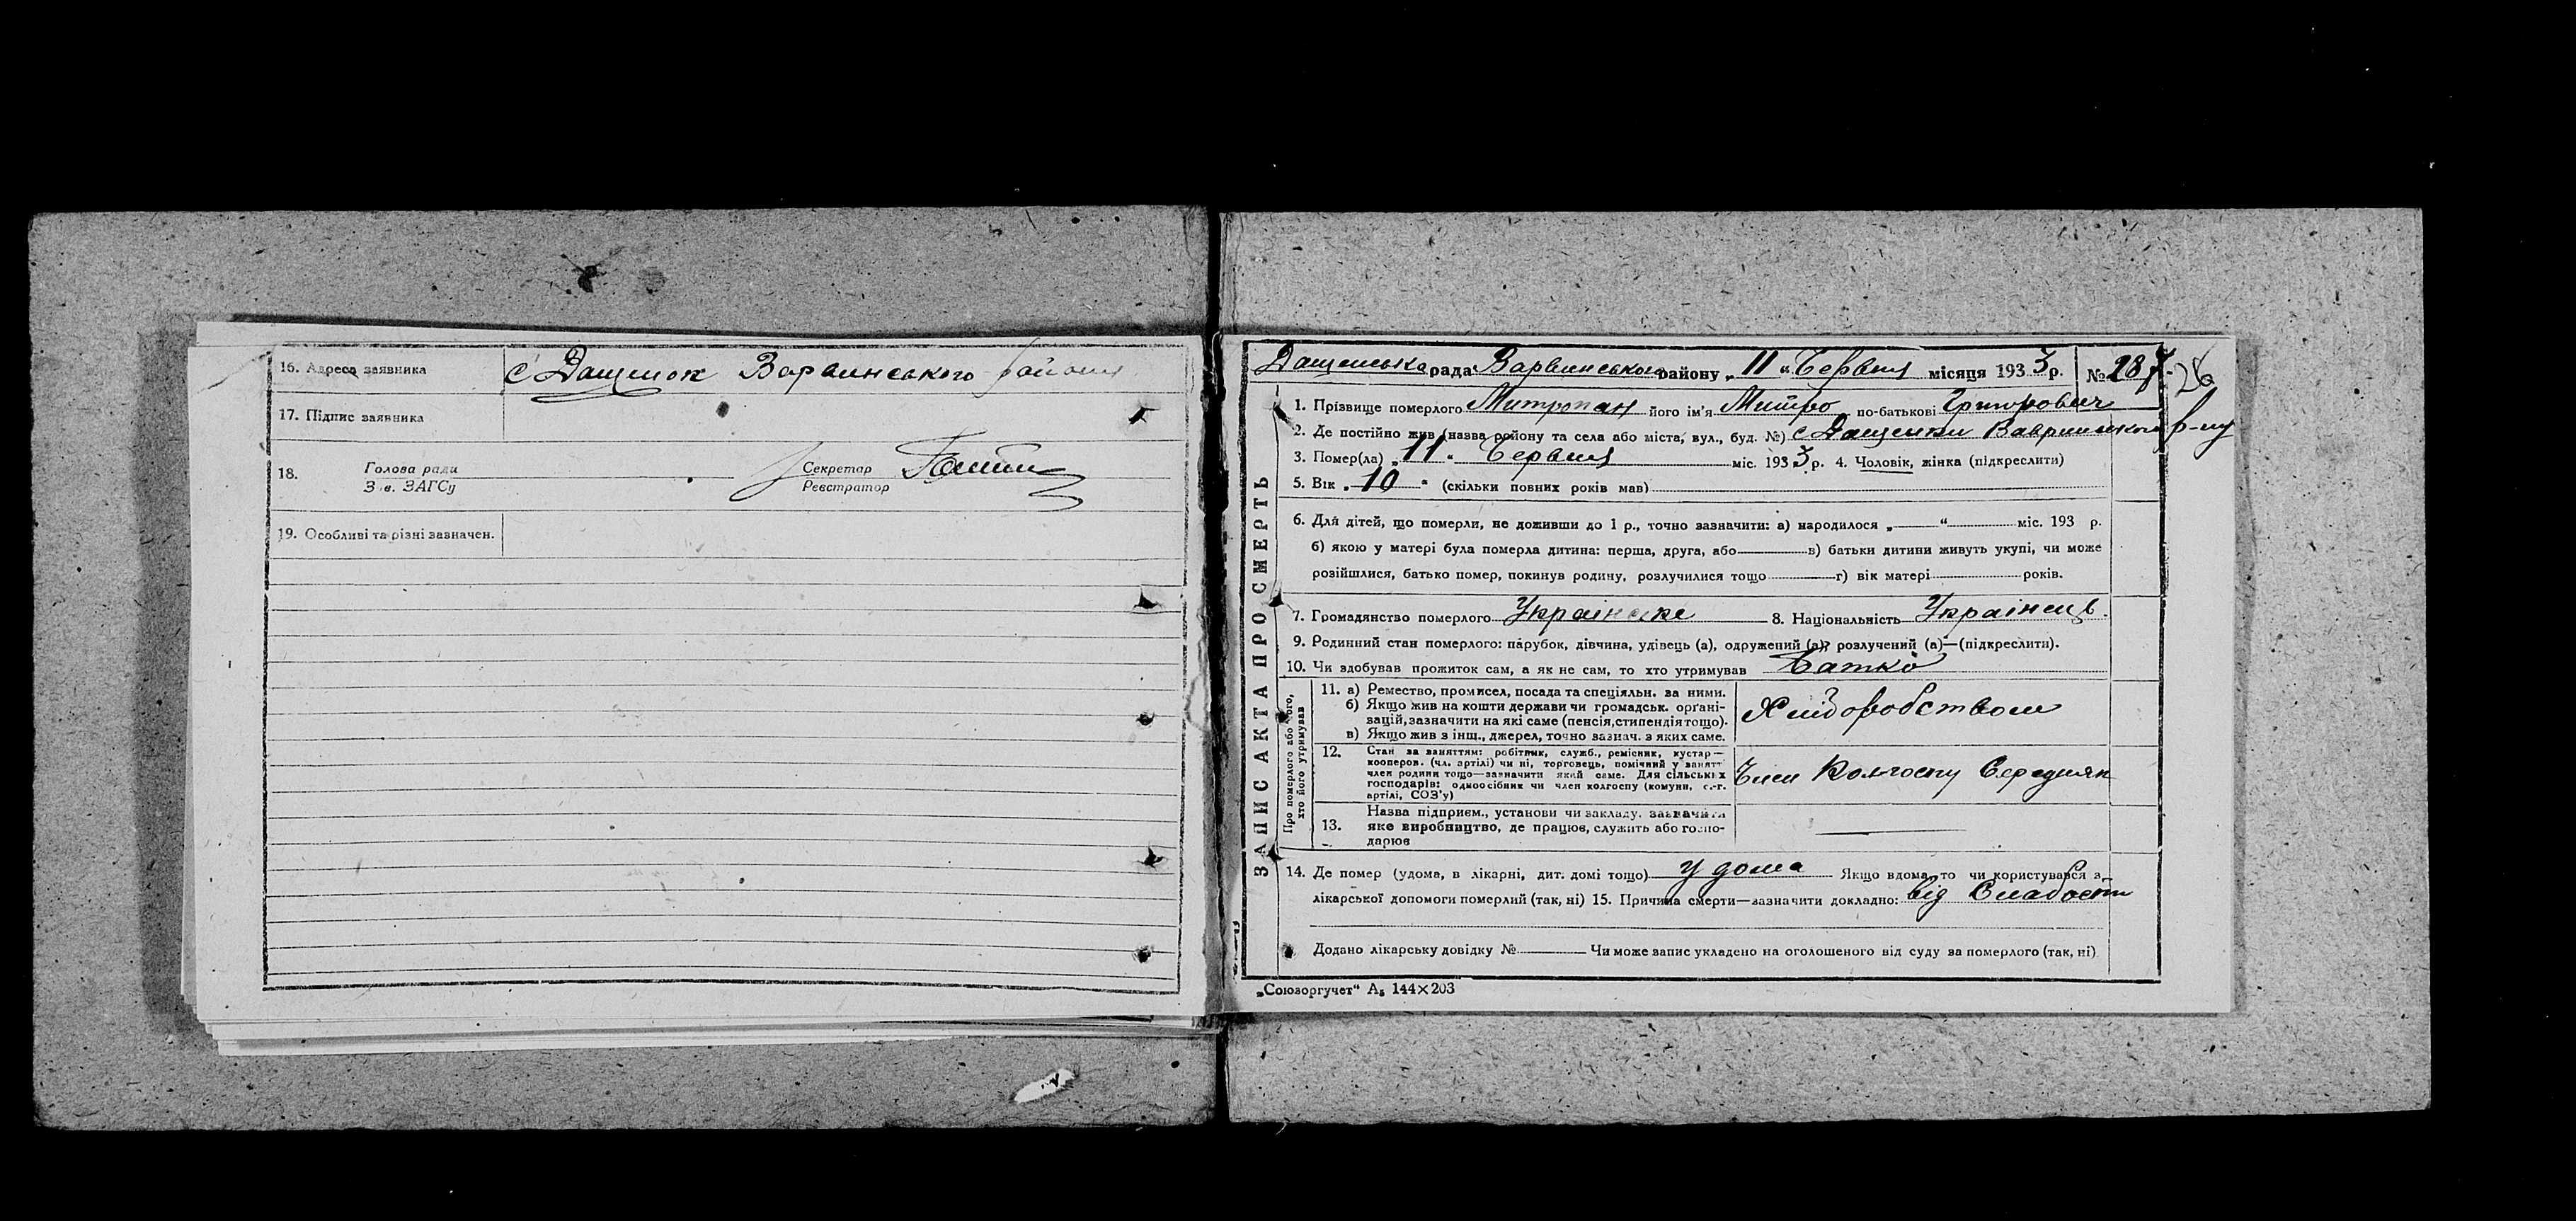 16. Адреса заявника с Дащенок Варвинського району
17. Підпис заявника
18. Голова ради Секретар
Зав. ЗАГСу Реєстратор
19. Особливі та різні зазначен.
Дащенська рада Варвинського району „11“ Червня місяця 1933 р. № 28
26
1. Прізвище померлого Митропан його ім'я Митро по-батькові Григорович
2. Де постійно жив (назва району та села або міста, вул., буд. №) с Дащенки Вавринського р-ну
3. Помер(ла) „11“ Червня міс. 1933 р. 4. Чоловік, жінка (підкреслити)
5. Вік „10“ (скільки повних років мав)
6. Для дітей, що померли, не доживши до 1 р., точно зазначити: а) народилося „ “ міс. 193 р.
б) якою у матері була померла дитина: перша, друга, або в) батьки дитини живуть укупі, чи може
розійшлися, батько помер, покинув родину, розлучилися тощо г) вік матері років.
7. Громадянство померлого Українське 8. Національність Українець
9. Родинний стан померлого: парубок, дівчина, удівець (а), одружений (а), розлучений (а)—(підкреслити).
10. Чи здобував прожиток сам, а як не сам, то хто утримував Батко
Про померлого або того,
хто його утримував
11. а) Ремество, промисел, посада та спеціяльн. за ними.
б) Якщо жив на кошти держави чи громадськ. орґані-
зацій, зазначити на які саме (пенсія, стипендія тощо).
в) Якщо жив з інщ., джерел, точно зазнач. з яких саме.
Хлідоробством
12. Стан за заняттям: робітник, служб., ремісник, кустар—
кооперов. (чл. артілі) чи ні, торговець, помічний у занятт
член родини тощо—зазначити який саме. Для сільських
господарів: одноосібник чи член колгоспу (комуни, с.-г.
артілі, СОЗ'у)
Член Колгоспу Середняк
13. Назва підприєм., установи чи закладу, зазначити
яке виробництво, де працює, служить або госпо-
дарює
14. Де помер (удома, в лікарні, дит. домі тощо) у дома Якщо вдома, то чи користувався з
лікарської допомоги померлий (так, ні) 15. Причина смерти—зазначити докладно: від Слабости
Додано лікарську довідку № Чи може запис укладено на оголошеного від суду за померлого (так, ні)
ЗАПИС АКТА ПРО СМЕРТЬ
„Союзоргучет“ А₅ 144×203